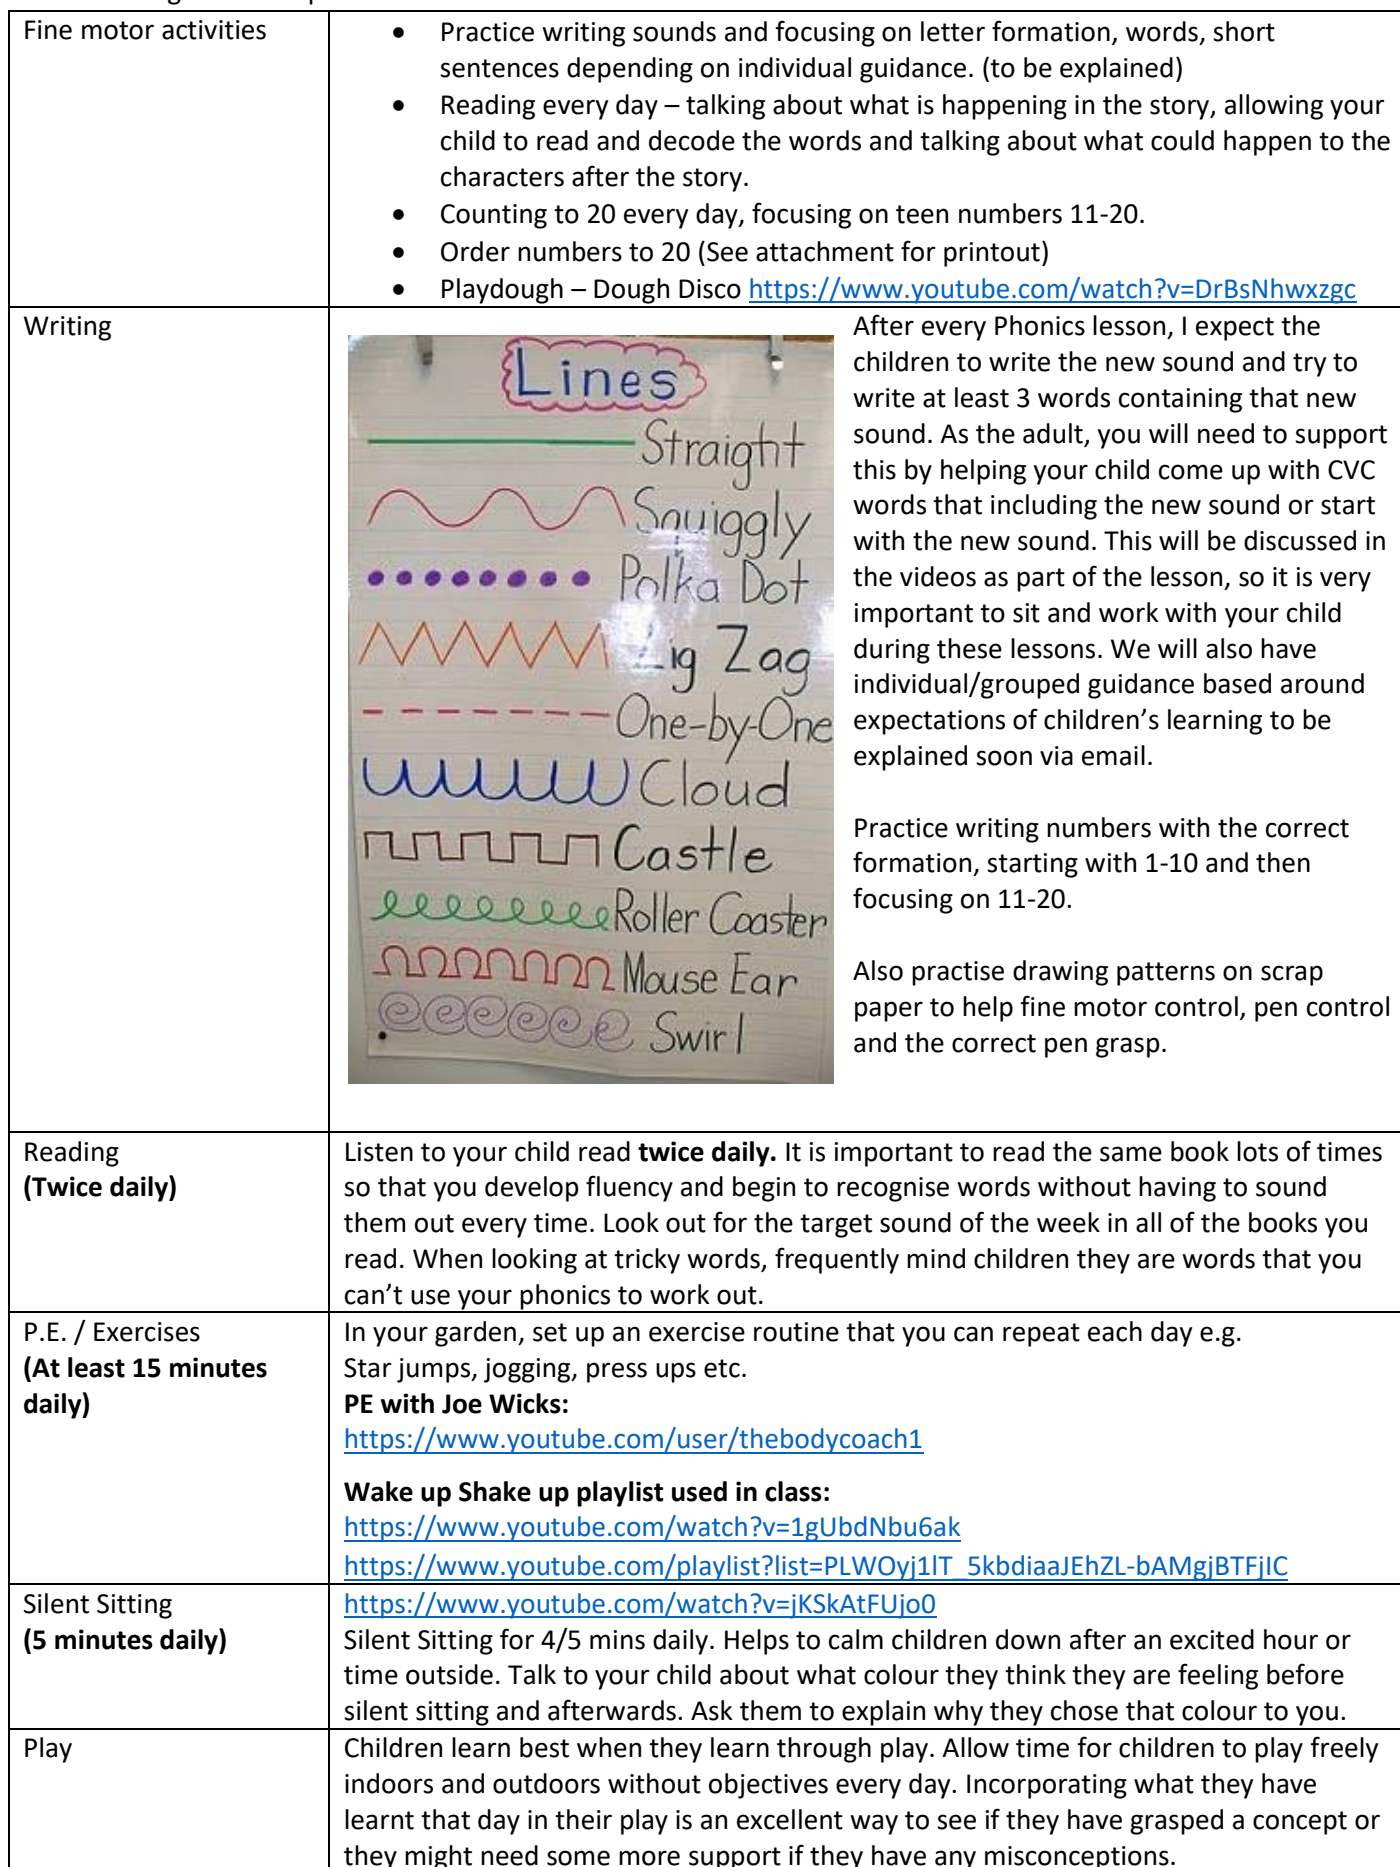 Fine motor activities
• Practice writing sounds and focusing on letter formation, words, short
sentences depending on individual guidance. (to be explained)
• Reading every day – talking about what is happening in the story, allowing your
child to read and decode the words and talking about what could happen to the
characters after the story.
• Counting to 20 every day, focusing on teen numbers 11-20.
• Order numbers to 20 (See attachment for printout)
• Playdough – Dough Disco https://www.youtube.com/watch?v=DrBsNhwxzgc
Writing
Lines
Straight
Squiggly
Polka Dot
Zig Zag
One-by-One
Cloud
Castle
Roller Coaster
Mouse Ear
Swirl
After every Phonics lesson, I expect the
children to write the new sound and try to
write at least 3 words containing that new
sound. As the adult, you will need to support
this by helping your child come up with CVC
words that including the new sound or start
with the new sound. This will be discussed in
the videos as part of the lesson, so it is very
important to sit and work with your child
during these lessons. We will also have
individual/grouped guidance based around
expectations of children’s learning to be
explained soon via email.
Practice writing numbers with the correct
formation, starting with 1-10 and then
focusing on 11-20.
Also practise drawing patterns on scrap
paper to help fine motor control, pen control
and the correct pen grasp.
Reading
(Twice daily)
Listen to your child read twice daily. It is important to read the same book lots of times
so that you develop fluency and begin to recognise words without having to sound
them out every time. Look out for the target sound of the week in all of the books you
read. When looking at tricky words, frequently mind children they are words that you
can’t use your phonics to work out.
P.E. / Exercises
(At least 15 minutes
daily)
In your garden, set up an exercise routine that you can repeat each day e.g.
Star jumps, jogging, press ups etc.
PE with Joe Wicks:
https://www.youtube.com/user/thebodycoach1
Wake up Shake up playlist used in class:
https://www.youtube.com/watch?v=1gUbdNbu6ak
https://www.youtube.com/playlist?list=PLWOyj1lT_5kbdiaaJEhZL-bAMgjBTFjIC
Silent Sitting
(5 minutes daily)
https://www.youtube.com/watch?v=jKSkAtFUjo0
Silent Sitting for 4/5 mins daily. Helps to calm children down after an excited hour or
time outside. Talk to your child about what colour they think they are feeling before
silent sitting and afterwards. Ask them to explain why they chose that colour to you.
Play
Children learn best when they learn through play. Allow time for children to play freely
indoors and outdoors without objectives every day. Incorporating what they have
learnt that day in their play is an excellent way to see if they have grasped a concept or
they might need some more support if they have any misconceptions.